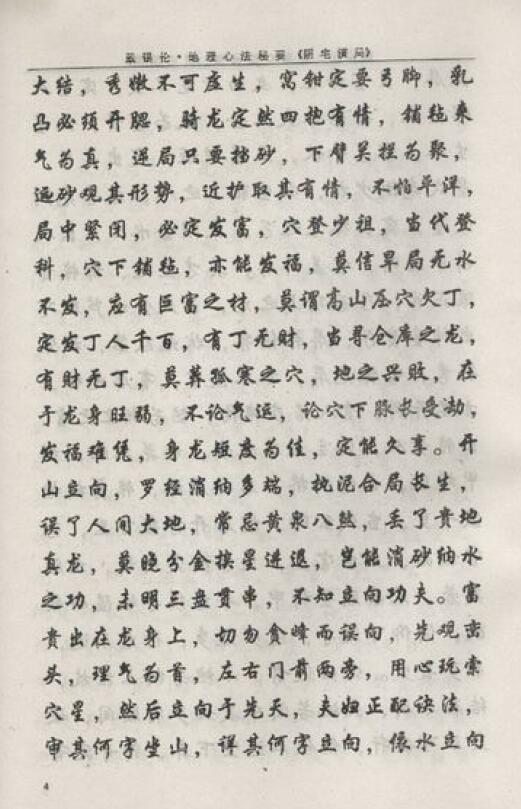 地理心法秘要《阴宅演局》
大结，秀嫩不可虚生，窝钳定要弓脚，乳
凸必须开腮，骑龙定然四抱有情，铺毡来
气为真，逆局只要挡砂，下臂关拦为聚，
远砂观其形势，近护取其有情，不怕平洋，
局中紧闭，必定发富，穴登少祖，当代登
科，穴下铺毡，亦能发福，莫信旱局无水
不发，左有巨富之材，莫谓高山压穴欠丁，
定发丁人千百，有丁无财，当寻仓库之龙，
有财无丁，莫葬孤寒之穴，地之兴败，在
于龙身旺弱，不论气运，论穴下脉长受劫，
发福难凭，身龙短度为佳，定能久享。开
山立向，罗经消纳多端，执泥合局长生，
误了人间大地，常忌黄泉八煞，丢了贵地
真龙，莫晓分金挨星进退，岂能消砂纳水
之功，未明三盘贯串，不知立向功夫。富
贵出在龙身上，切勿贪峰而误向，先观峦
头，理气为首，左右门前两旁，用心玩索
穴星，然后立向于先天，夫妇正配诀法，
审其何字坐山，详其何字立向，依水立向
4